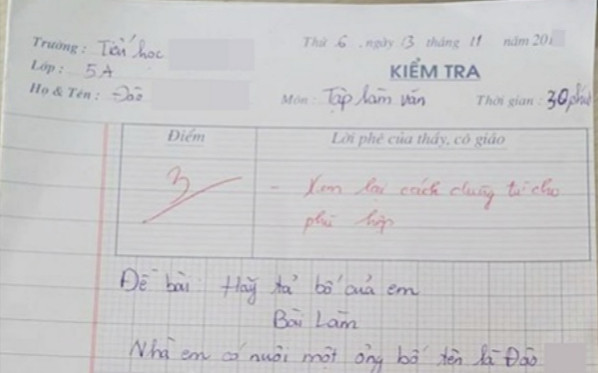 Trường : Tiểu học
Thứ 6 , ngày 13 tháng 11 năm 201
Lớp : 5A
KIỂM TRA
Họ & Tên : Đào
Môn : Tập làm văn
Thời gian : 30 phút
Điểm
Lời phê của thầy, cô giáo
3
- Xem lại cách dùng từ cho
phù hợp
Đề bài: Hãy tả bố của em
Bài Làm
Nhà em có nuôi một ông bố tên là Đào